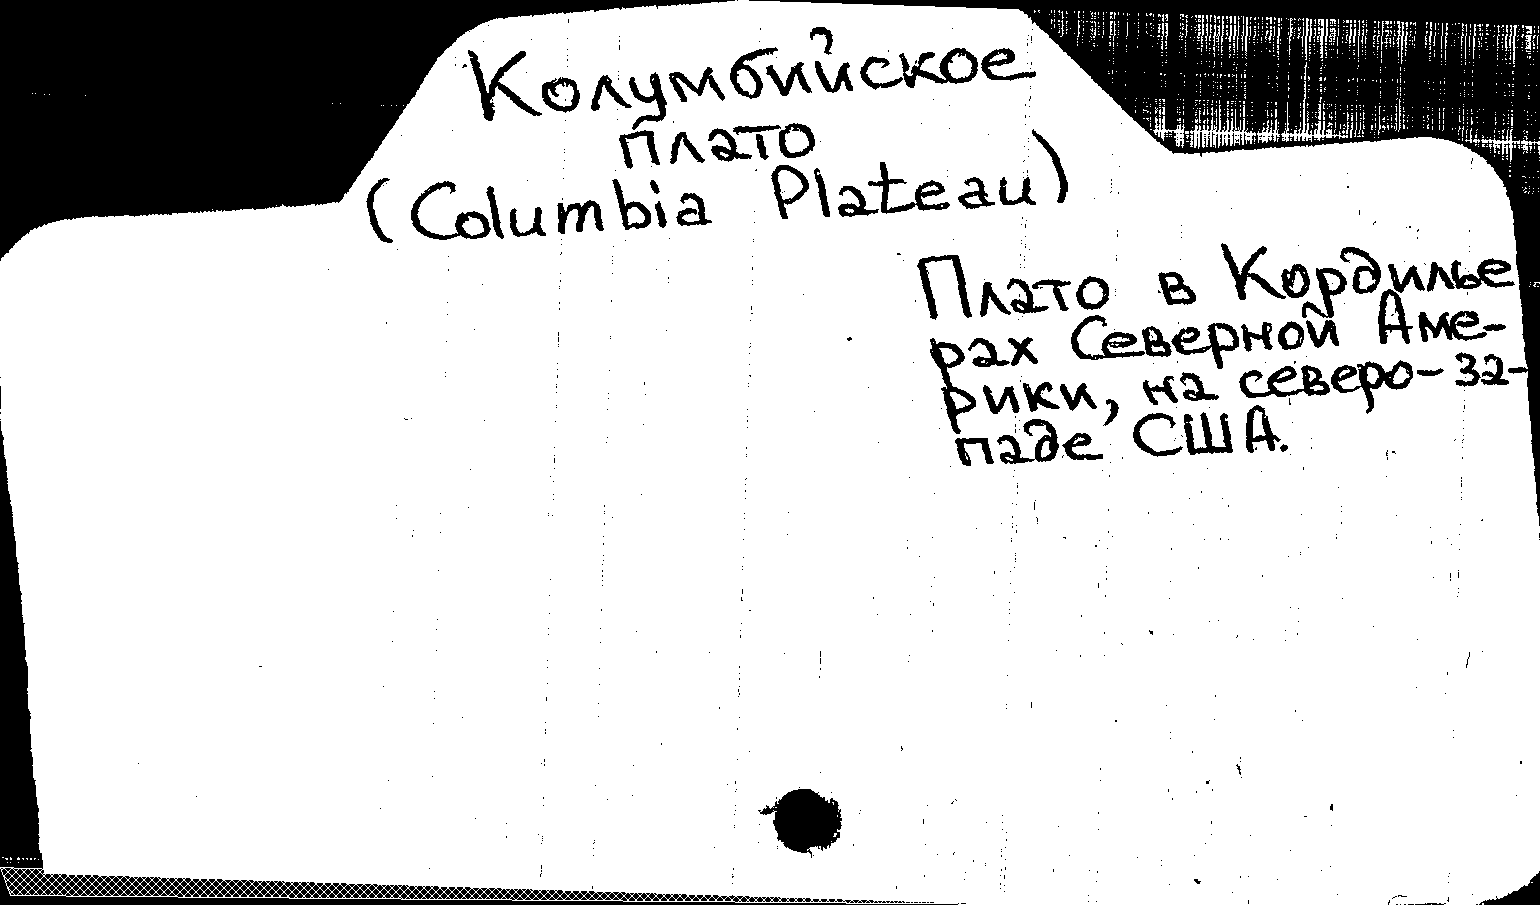 Колумбийское
плато
(Columbia Plateau)
Плато в Кордилье
рах Северной Аме-
рики, на северо-за-
паде США.